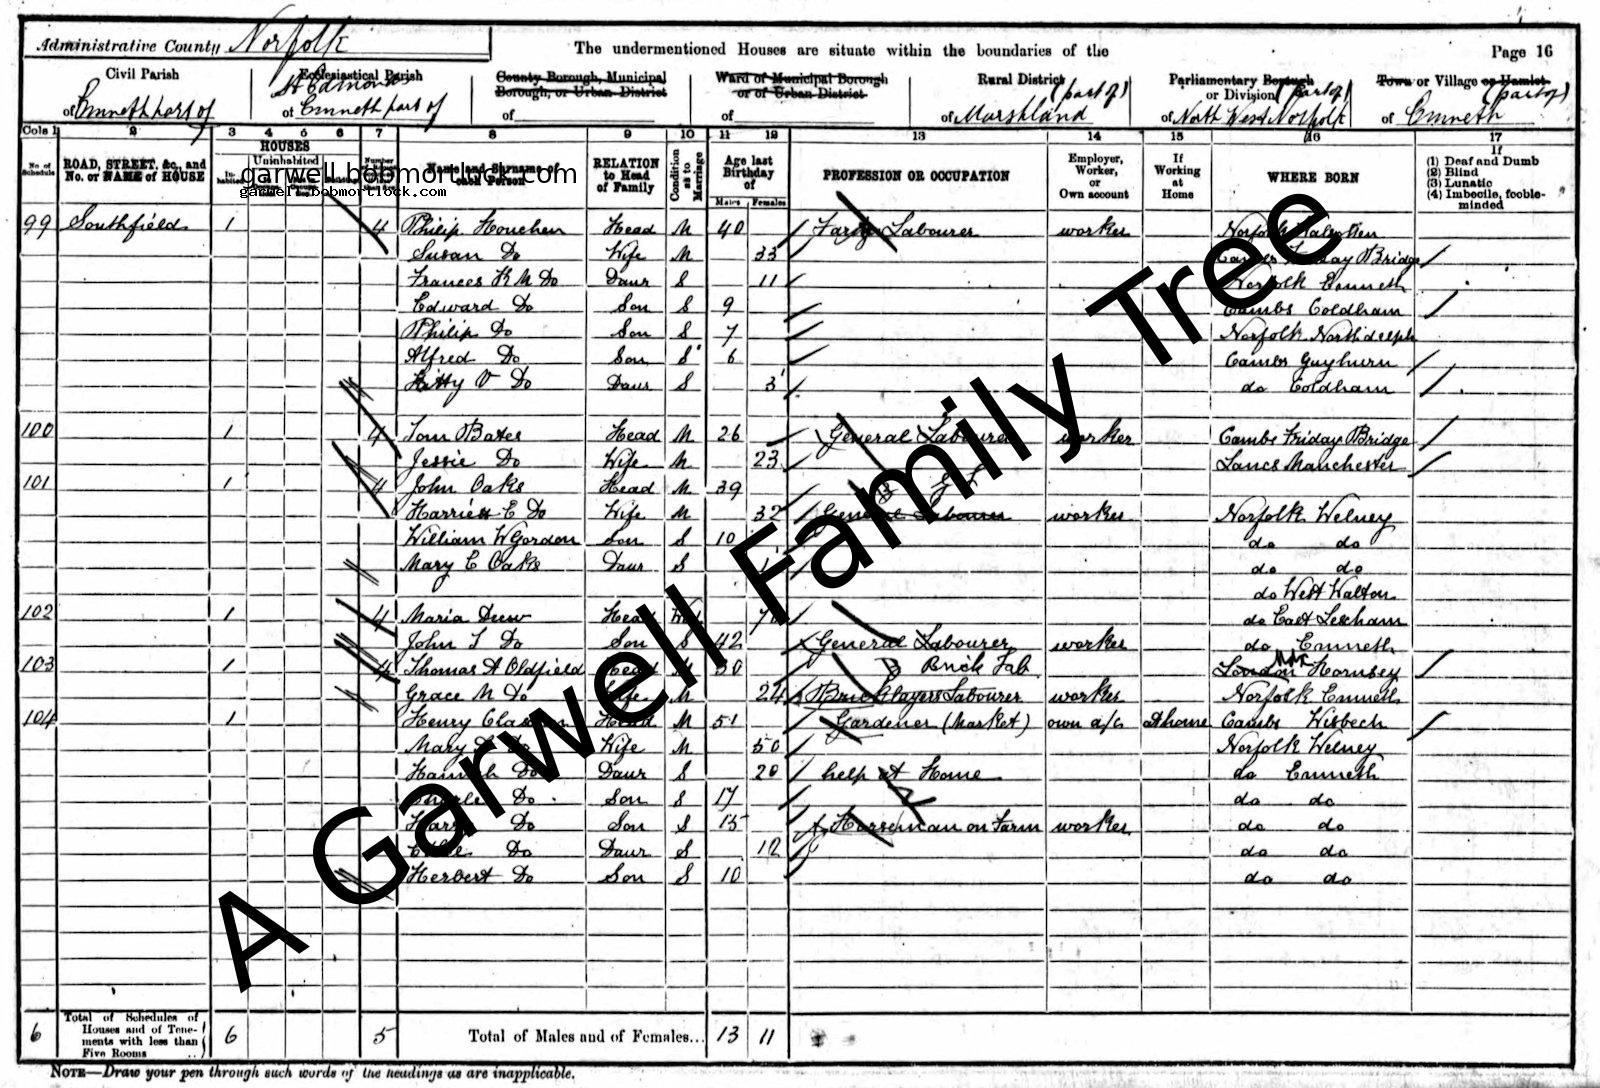 Administrative County Norfolk
The undermentioned Houses are situate within the boundaries of the
Page 16
Civil Parish
of Emneth part of
Ecclesiastical Parish
St Edmund
of Emneth part of
County Borough, Municipal
Borough, or Urban District
of
Ward of Municipal Borough
or of Urban District
of
Rural District (part of)
of Marshland
Parliamentary Borough
or Division (part of)
of North West Norfolk
Town or Village or Hamlet
(part of)
of Emneth
Cols 1 2 3 4 5 6 7 8 9 10 11 12 13 14 15 16 17
No. of Schedule
ROAD, STREET, &c., and No. or NAME of HOUSE
HOUSES
Uninhabited
Name and Surname of each Person
garwell.bobmortlock.com
garwell.bobmortlock.com
RELATION to Head of Family
Condition as to Marriage
Age last Birthday of
Males Females
PROFESSION OR OCCUPATION
Employer, Worker, or Own account
If Working at Home
WHERE BORN
If
(1) Deaf and Dumb
(2) Blind
(3) Lunatic
(4) Imbecile, feeble-minded
99 Southfield 1 4 Philip Houchen Head M 40 Farm Labourer worker Norfolk
Susan Do Wife M 33 Cambs Friday Bridge
Frances K M Do Daur S 11 Norfolk Emneth
Edward Do Son S 9 Cambs Coldham
Philip Do Son S 7 Norfolk
Alfred Do Son S 6 Cambs Guyhirn
Kitty V Do Daur S 3 do Coldham
100 1 4 Tom Bates Head M 26 General Labourer worker Cambs Friday Bridge
Jessie Do Wife M 23 Lancs Manchester
101 1 4 John Oaks Head M 39
Harriett E Do Wife M 32 General Labourer worker Norfolk Welney
William W Gordon Son S 10 do do
Mary E Oaks Daur S 1 do do
do West Walton
102 1 4 Maria Drew Head do East Lexham
John T Do Son S 42 General Labourer worker do Emneth
103 1 4 Thomas A Oldfield Head M 30 Brick Lab London Hornsey
Grace N Do Wife M 24 Bricklayers Labourer worker Norfolk Emneth
104 1 Henry Head M 51 Gardener (Market) own a/c At home Cambs Wisbech
Mary Do Wife M 50 Norfolk Welney
Hannah Do Daur S 20 help at Home do Emneth
Charles Do Son S 17 do do
Harry Do Son S 15 Horseman on Farm worker do do
Do Daur S 12 do do
Herbert Do Son S 10 do do
A Garwell Family Tree
6 Total of Schedules of Houses and of Tenements with less than Five Rooms 6 5 Total of Males and of Females... 13 11
NOTE—Draw your pen through such words of the headings as are inapplicable.